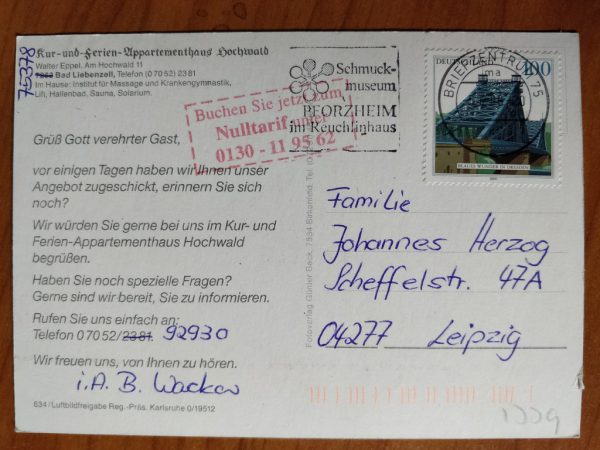 Kur-und-Ferien-Appartementhaus Hochwald
Walter Eppel. Am Hochwald 11
7263 Bad Liebenzell, Telefon (0 70 52) 23 81
75378
Im Hause: Institut für Massage und Krankengymnastik,
Lift, Hallenbad, Sauna, Solarium.
Buchen Sie jetzt zum
Nulltarif unter
0130 - 11 95 62
Schmuck-
museum
PFORZHEIM
im Reuchlinhaus
BRIEFZENTRUM 75
ma
DEUTSCHE
100
BLAUES WUNDER IN DRESDEN
Grüß Gott verehrter Gast,
vor einigen Tagen haben wir Ihnen unser
Angebot zugeschickt, erinnern Sie sich
noch?
Wir würden Sie gerne bei uns im Kur- und
Ferien-Appartementhaus Hochwald
begrüßen.
Haben Sie noch spezielle Fragen?
Gerne sind wir bereit, Sie zu informieren.
Rufen Sie uns einfach an:
Telefon 0 70 52 / 23 81. 92930
Wir freuen uns, von Ihnen zu hören.
i.A. B. Wacker
634 / Luftbildfreigabe Reg.-Präs. Karlsruhe 0/19512
Fotoverlag Günter Beck, 7534 Birkenfeld, Tel.
Familie
Johannes Herzog
Scheffelstr. 47A
04277 Leipzig